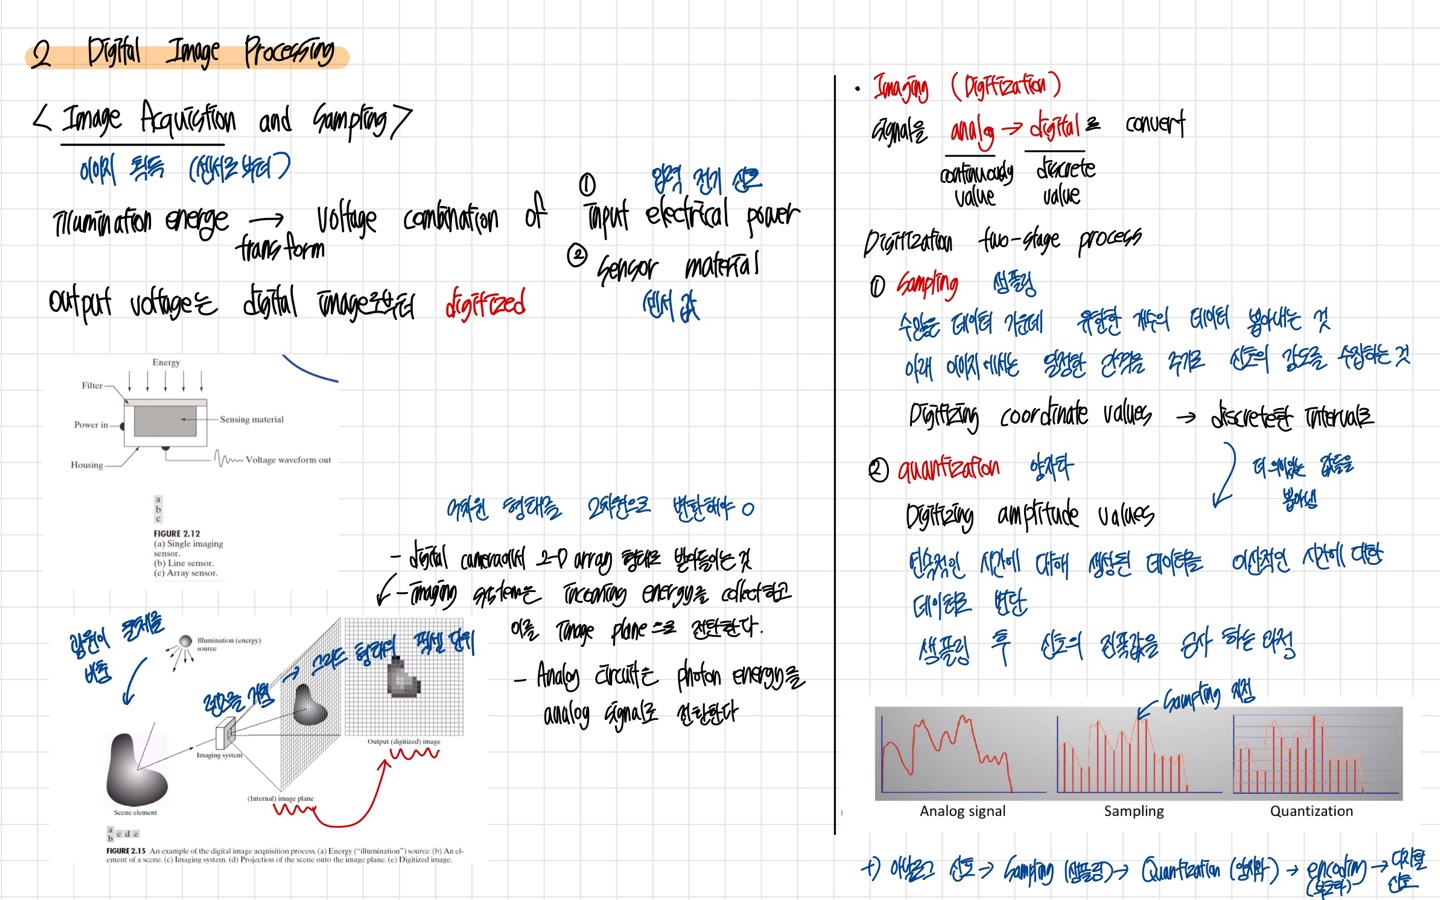 2 Digital Image Processing
< Image Acquisition and Sampling >
이미지 획득 (센서로부터)
Illumination energe → voltage combination of
transform
① 입력 전기 신호
input electrical power
② sensor material
센서 값
output voltage는 digital image로부터 digitized
Energy
Filter
Power in
Sensing material
Housing
Voltage waveform out
a
b
c
FIGURE 2.12
(a) Single imaging
sensor.
(b) Line sensor.
(c) Array sensor.
형태를 2차원으로 변환해야
- digital camera에서 2-D array 형태로 받아들이는 것
- imaging system은 incoming energy을 collect하고
이를 image plane으로 전달한다.
- Analog circuit는 photon energy을
analog signal로 전환한다
광원이 물체를
비춤
Illumination (energy)
source
렌즈를 거쳐 → 그리드 형태의 픽셀 단위
Output (digitized) image
Imaging system
(Internal) image plane
Scene element
a
b c d e
FIGURE 2.15 An example of the digital image acquisition process. (a) Energy ("illumination") source. (b) An el-
ement of a scene. (c) Imaging system. (d) Projection of the scene onto the image plane. (e) Digitized image.
• Imaging (Digitization)
signal을 analog → digital로 convert
continuously discrete
value value
Digitization two-stage process
① Sampling 샘플링
수많은 데이터 가운데 유한한 개수의 데이터 뽑아내는 것
아래 이미지에서는 일정한 간격을 주기로 신호의 강도를 수집하는 것
Digitizing coordinate values → discrete한 interval로
② quantization 양자화
더 의미있는 값들을
뽑아냄
Digitizing amplitude values
연속적인 시간에 대해 생성된 데이터를 이산적인 시간에 대한
데이터로 변환
샘플링 후 신호의 진폭값을 근사 하는 과정
Sampling 지점
Analog signal
Sampling
Quantization
+) 아날로그 신호 → Sampling (샘플링) → Quantization (양자화) → encoding (부호화) → 디지털 신호